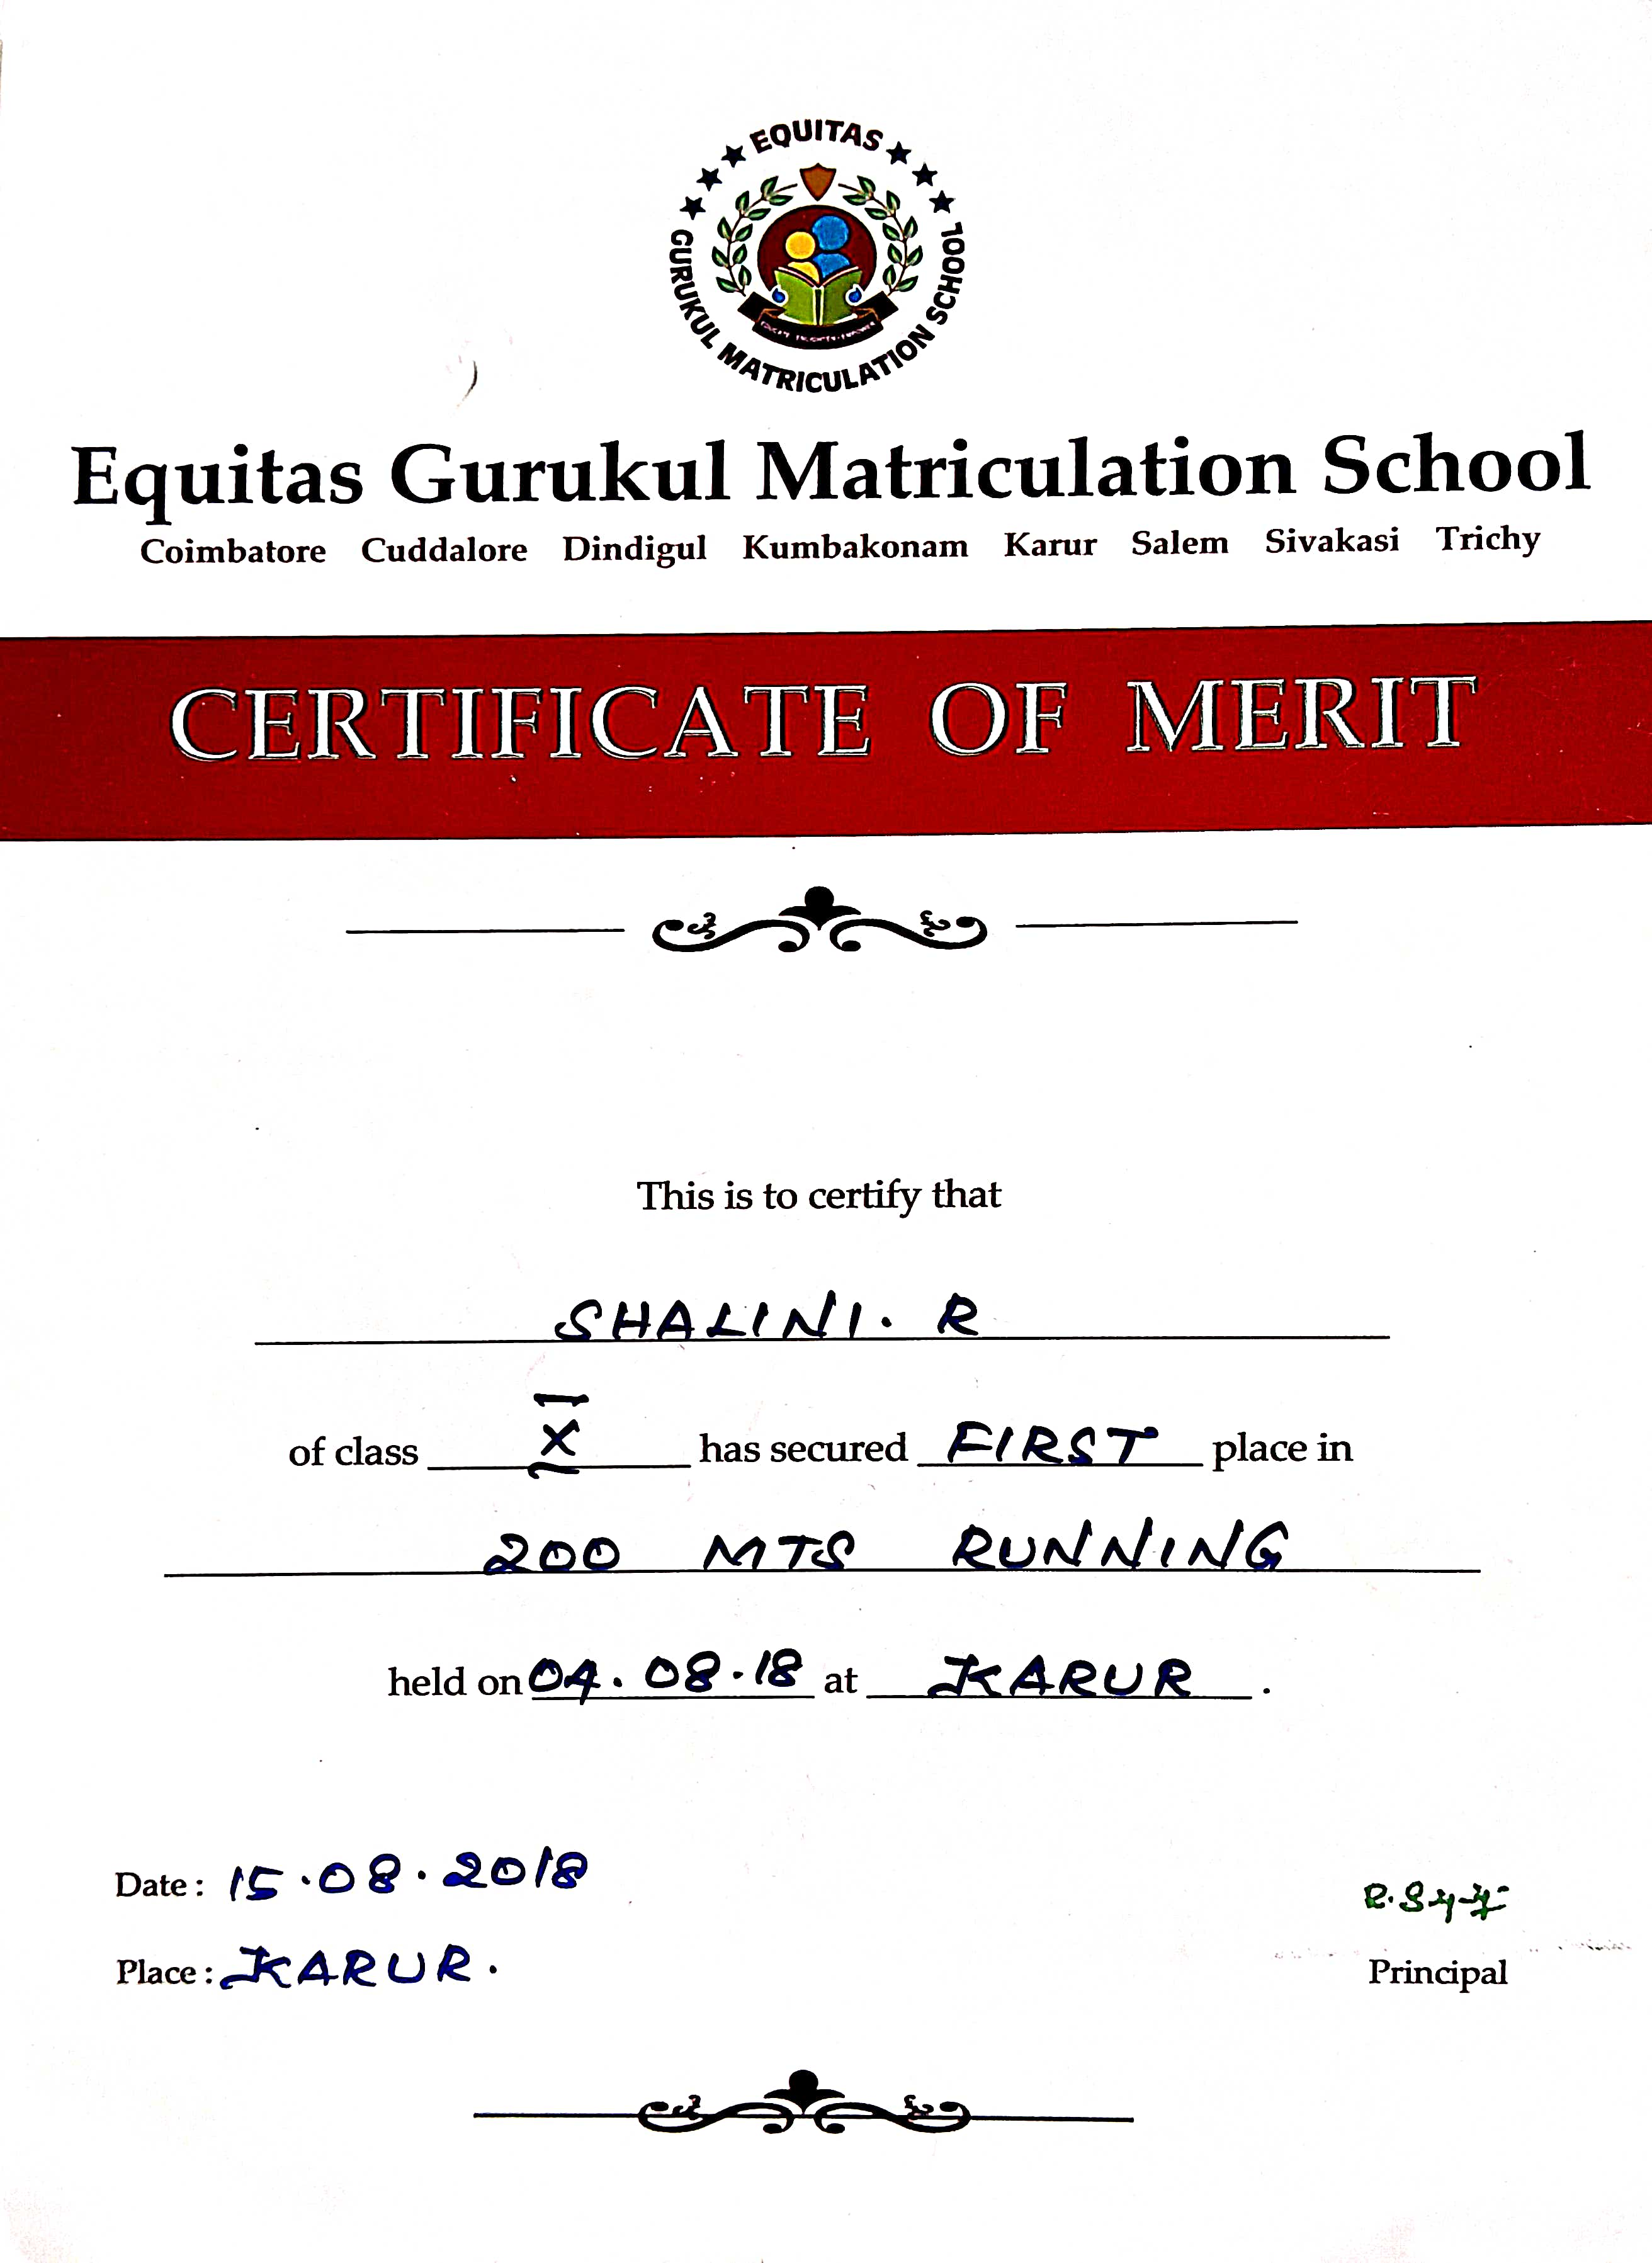 EQUITAS
GURUKUL MATRICULATION SCHOOL
Equitas Gurukul Matriculation School
Coimbatore Cuddalore Dindigul Kumbakonam Karur Salem Sivakasi Trichy
CERTIFICATE OF MERIT
This is to certify that
SHALINI. R
of class X has secured FIRST place in
200 MTS RUNNING
held on 04.08.18 at KARUR.
Date: 15.08.2018
Place: KARUR.
Principal